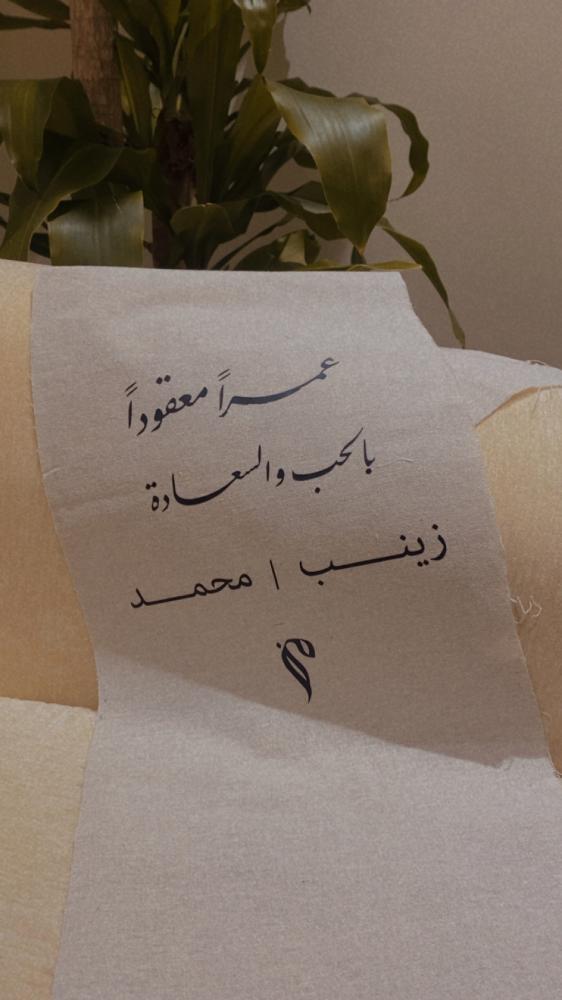 عمـراً معقوداً
بالحب والسعـادة
زينـب | محمـد